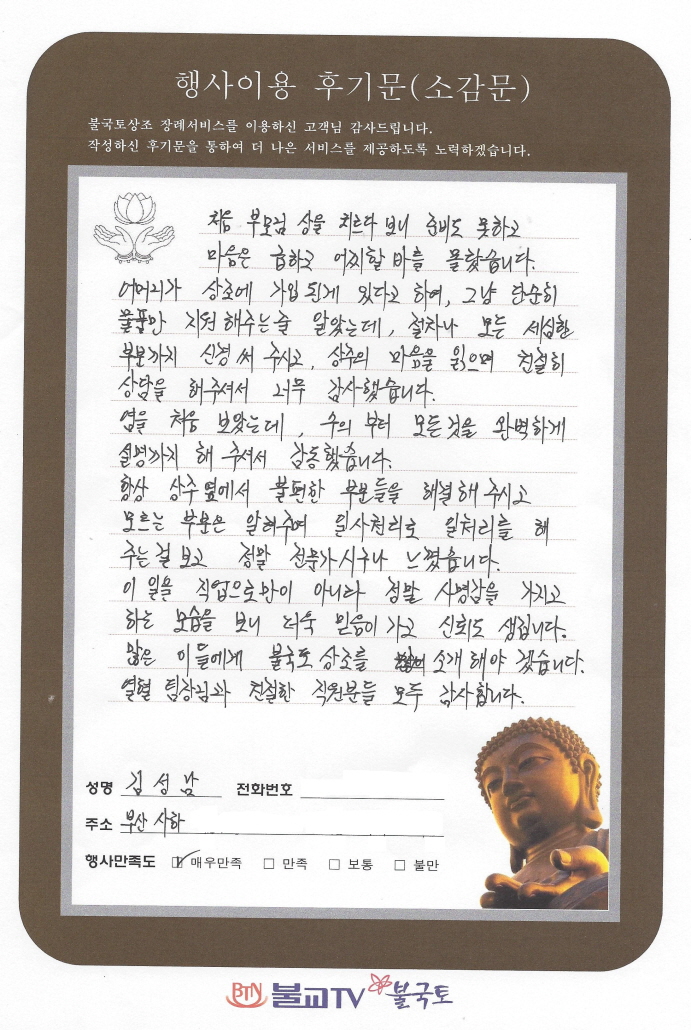 행사이용 후기문(소감문)
불국토상조 장례서비스를 이용하신 고객님 감사드립니다.
작성하신 후기문을 통하여 더 나은 서비스를 제공하도록 노력하겠습니다.
처음 부모님 상을 치르다 보니 준비도 못하고
마음은 급하고 어찌할 바를 몰랐습니다.
어머니가 상조에 가입 된게 있다고 하여, 그냥 단순히
물품만 지원 해주는줄 알았는데, 절차나 모든 세심한
부분까지 신경 써 주시고, 상주의 마음을 읽으며 친절히
상담을 해주셔서 너무 감사했습니다.
염을 처음 보았는데, 수의 부터 모든것을 완벽하게
설명까지 해 주셔서 감동했습니다.
항상 상주 옆에서 불편한 부분들을 해결해 주시고
모르는 부분은 알려주며 일사천리로 일처리를 해
주는걸 보고 정말 전문가시구나 느꼈습니다.
이 일을 직업으로만이 아니라 정말 사명감을 가지고
하는 모습을 보니 더욱 믿음이 가고 신뢰도 생깁니다.
많은 이들에게 불국토 상조를 소개 해야 겠습니다.
열혈 팀장님과 친절한 직원분들 모두 감사합니다.
성명 김성남 전화번호
주소 부산 사하
행사만족도 매우만족 만족 보통 불만
BTN 불교TV 불국토